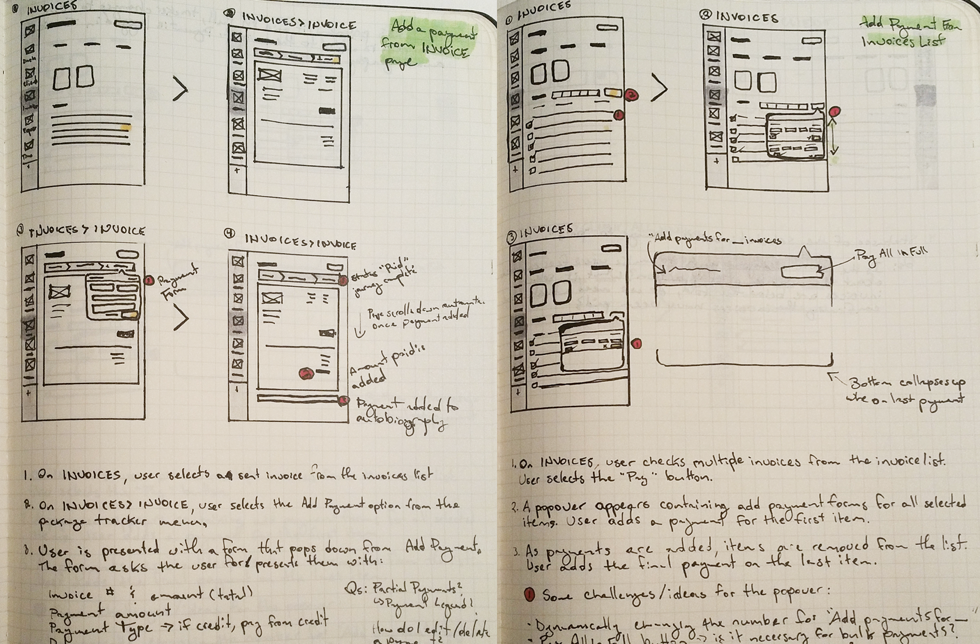 ① INVOICES
② INVOICES > INVOICE
Add a payment
from INVOICE
page
③ INVOICES > INVOICE
Payment
Form
④ INVOICES > INVOICE
Status "Paid"
journey complete
Page scrolls down automatic.
once payment added
Amount paid is
added
Payment added to
autobiography
1. On INVOICES, user selects a sent invoice from the invoices list
2. On INVOICES > INVOICE, user selects the Add Payment option from the
package tracker menu.
3. User is presented with a form that pops down from Add Payment.
The form asks the user for & presents them with:
Invoice # & amount (total)
Payment amount
Payment Type → if credit, pay from credit
Qs: Partial Payments?
↳ Payment Legend?
How do I edit/delete
① INVOICES
②
Add Payment From
Invoices List
③ INVOICES
"Add payments for __ invoices
Pay All in Full
Bottom collapses up
when on last payment
1. On INVOICES, user checks multiple invoices from the invoice list.
User selects the "Pay" button.
2. A popover appears containing add payment forms for all selected
items. User adds a payment for the first item.
3. As payments are added, items are removed from the list.
User adds the final payment on the last item.
① Some challenges/ideas for the popover:
- Dynamically changing the number for "Add payments for __"
- Pay All in Full button → is it necessary for bulk payments?